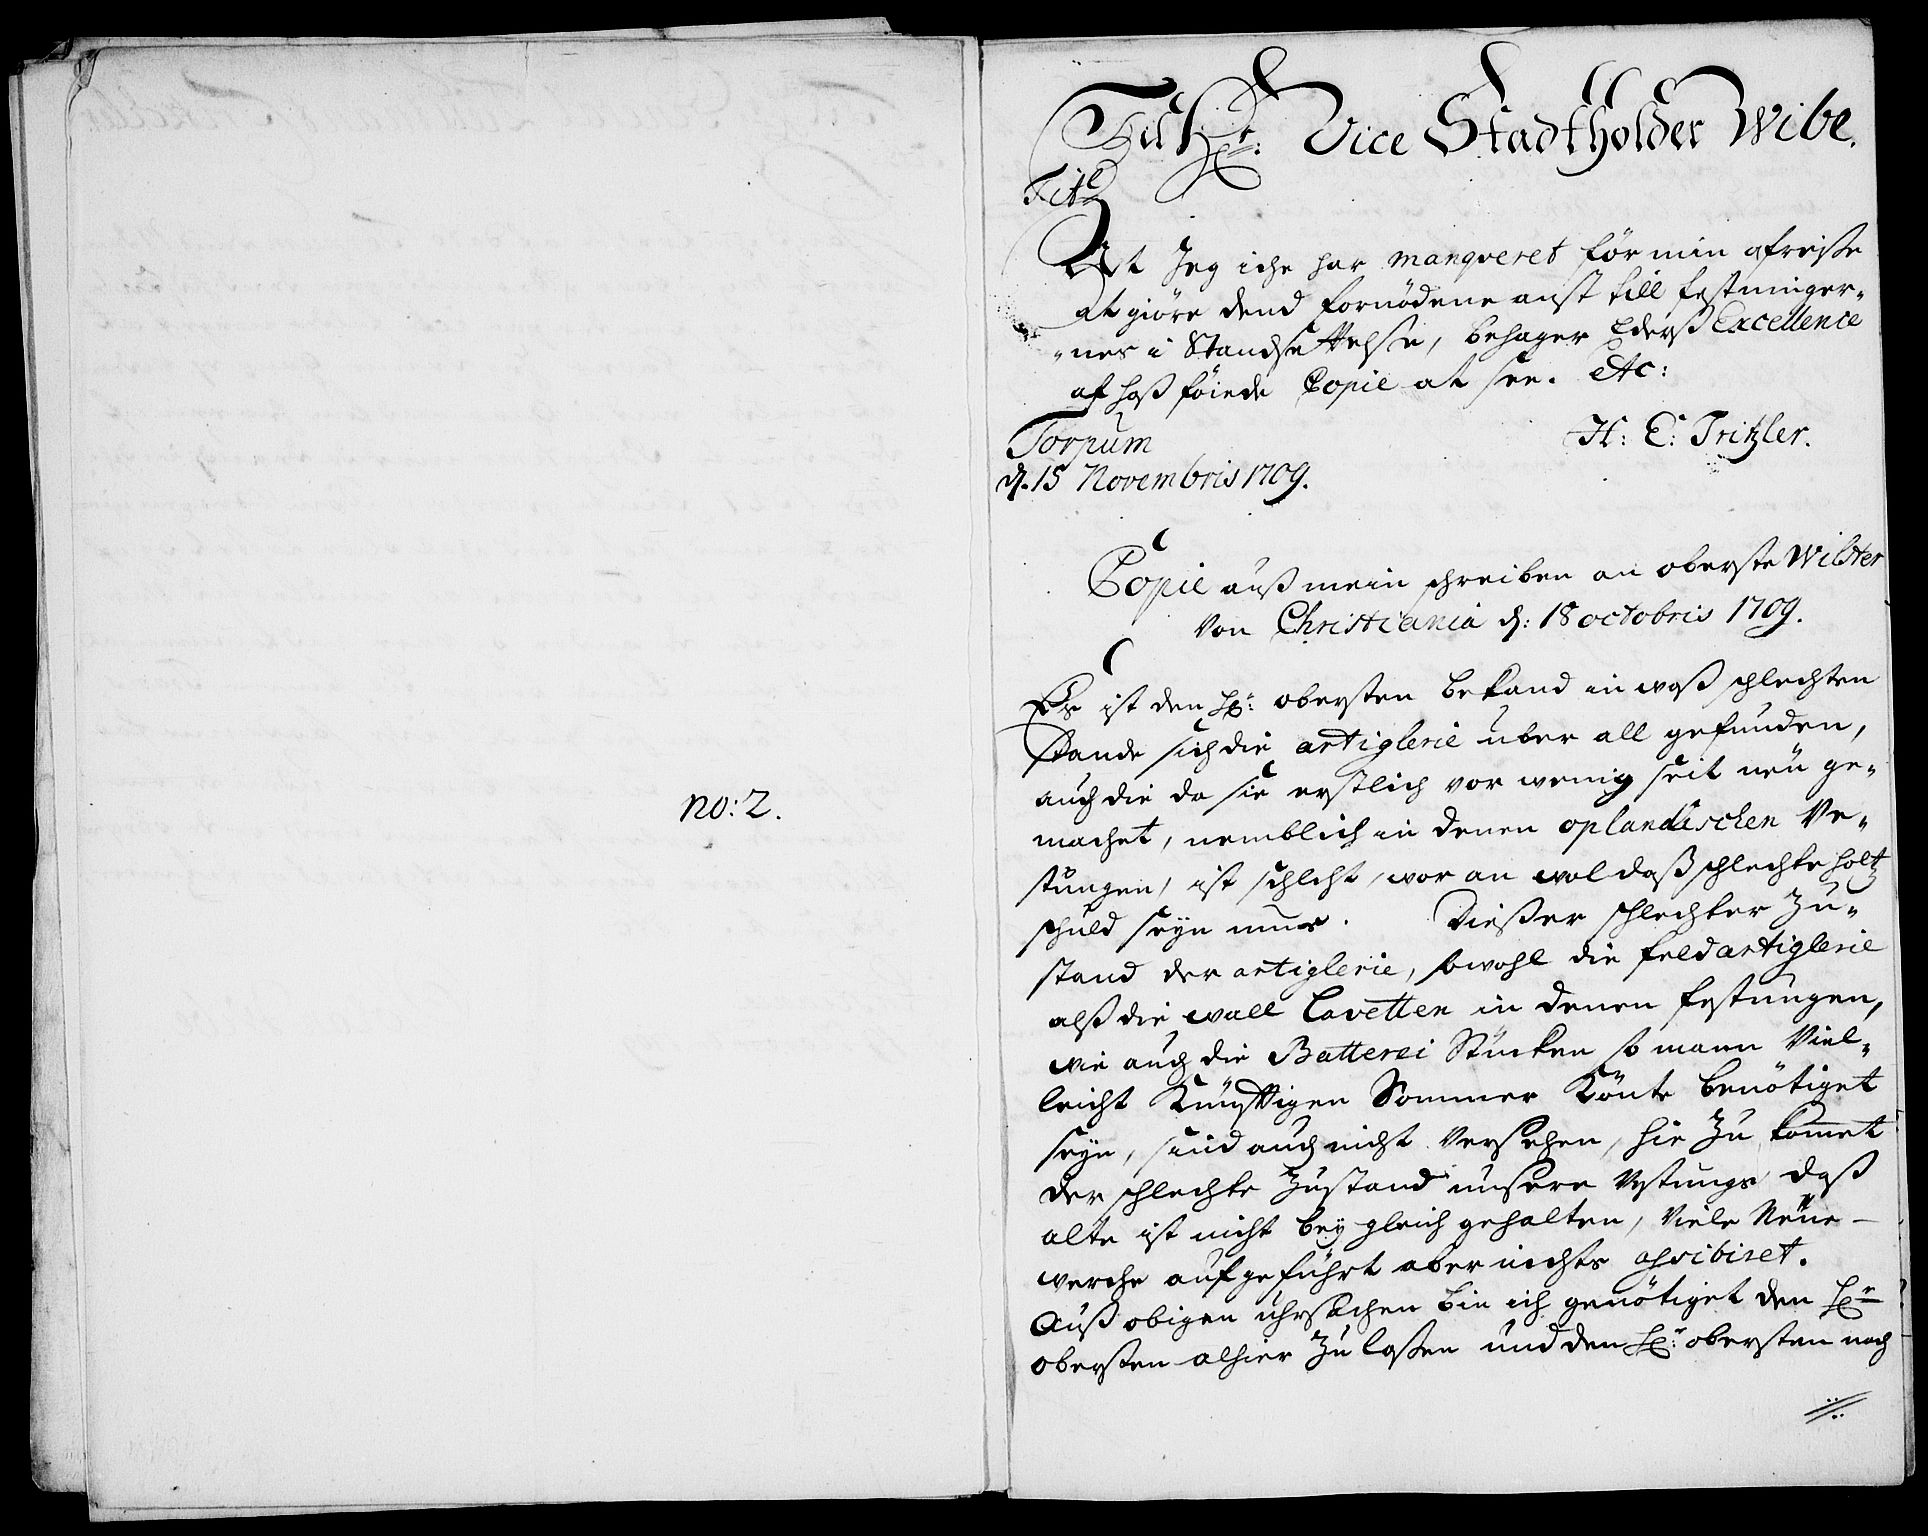 no: 2.
Til Hr: Vice Stadtholder Wibe.
Titl
At Jeg iche har manqveret för min afreiße
at giöre dend fornödene anst till festninger-
-nes i Standsettelße, behager Eders Excellence
af hoß föiede Copie at see. etc:
H: C: Tritzler.
Torpum
d. 15 Novembris 1709.
Copie auß mein schreiben an oberste Wilster
von Christiania d: 18 octobris 1709.
Es ist den Hr: obersten bekand in waß schlechten
stande sich die artiglerie uber all gefunden,
auch die da sie erstlich vor wenig Zeit neu ge-
machet, nemblich in denen oplandischen Ve-
stungen, ist schlecht, wor an wol daß schlechte holtz
schuld seyn mus. Dießer schlechter Zu-
stand der artiglerie, sowohl die feldartiglerie
alß die wall Lavetten in denen festungen,
wie auch die Batterei Stücken so mann Viel-
leicht Künfftigen Sommer Könte benötiget
seyn, sind auch nicht Versehen, hie Zu komet
der schlechte Zustand unsere Vestungs daß
alte ist nicht bey gleich gehalten, Viele Neue-
werche aufgeführt aber nichts
Auß obigen uhrsachen bin ich genötiget den Hr
obersten alhier Zu laßen und den Hr: obersten nach